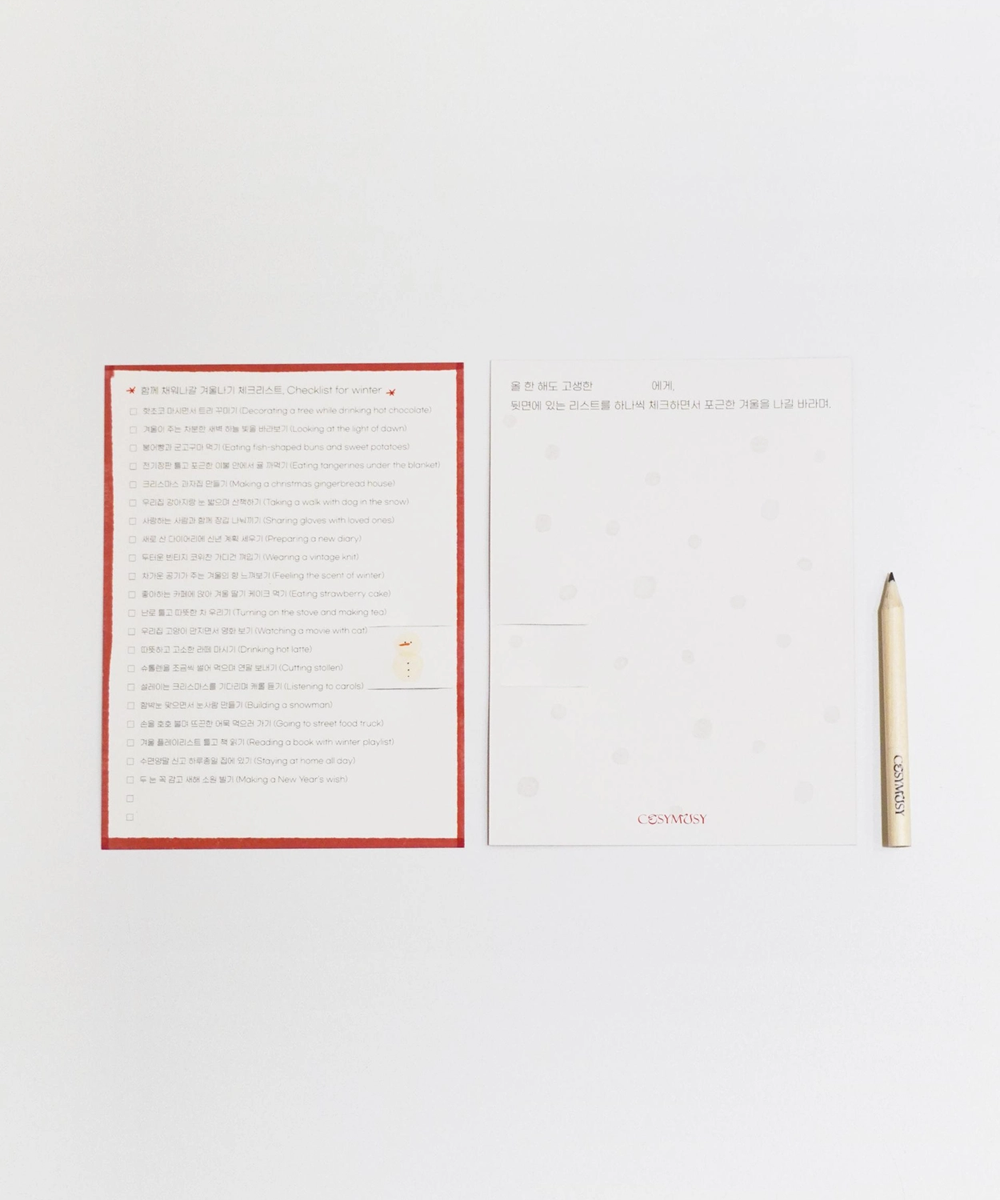 함께 채워나갈 겨울나기 체크리스트, Checklist for winter
핫초코 마시면서 트리 꾸미기 (Decorating a tree while drinking hot chocolate)
겨울이 주는 차분한 새벽 하늘 빛을 바라보기 (Looking at the light of dawn)
붕어빵과 군고구마 먹기 (Eating fish-shaped buns and sweet potatoes)
전기장판 틀고 포근한 이불 안에서 귤 까먹기 (Eating tangerines under the blanket)
크리스마스 과자집 만들기 (Making a christmas gingerbread house)
우리집 강아지랑 눈 밟으며 산책하기 (Taking a walk with dog in the snow)
사랑하는 사람과 함께 장갑 나눠끼기 (Sharing gloves with loved ones)
새로 산 다이어리에 신년 계획 세우기 (Preparing a new diary)
두터운 빈티지 코위찬 가디건 꺼입기 (Wearing a vintage knit)
차가운 공기가 주는 겨울의 향 느껴보기 (Feeling the scent of winter)
좋아하는 카페에 앉아 겨울 딸기 케이크 먹기 (Eating strawberry cake)
난로 틀고 따뜻한 차 우리기 (Turning on the stove and making tea)
우리집 고양이 만지면서 영화 보기 (Watching a movie with cat)
따뜻하고 고소한 라떼 마시기 (Drinking hot latte)
슈톨렌을 조금씩 썰어 먹으며 연말 보내기 (Cutting stollen)
설레이는 크리스마스를 기다리며 캐롤 듣기 (Listening to carols)
함박눈 맞으면서 눈사람 만들기 (Building a snowman)
손을 호호 불며 뜨끈한 어묵 먹으러 가기 (Going to street food truck)
겨울 플레이리스트 틀고 책 읽기 (Reading a book with winter playlist)
수면양말 신고 하루종일 집에 있기 (Staying at home all day)
두 눈 꼭 감고 새해 소원 빌기 (Making a New Year's wish)
올 한 해도 고생한 에게,
뒷면에 있는 리스트를 하나씩 체크하면서 포근한 겨울을 나길 바라며.
CESYMUSY
CESYMUSY